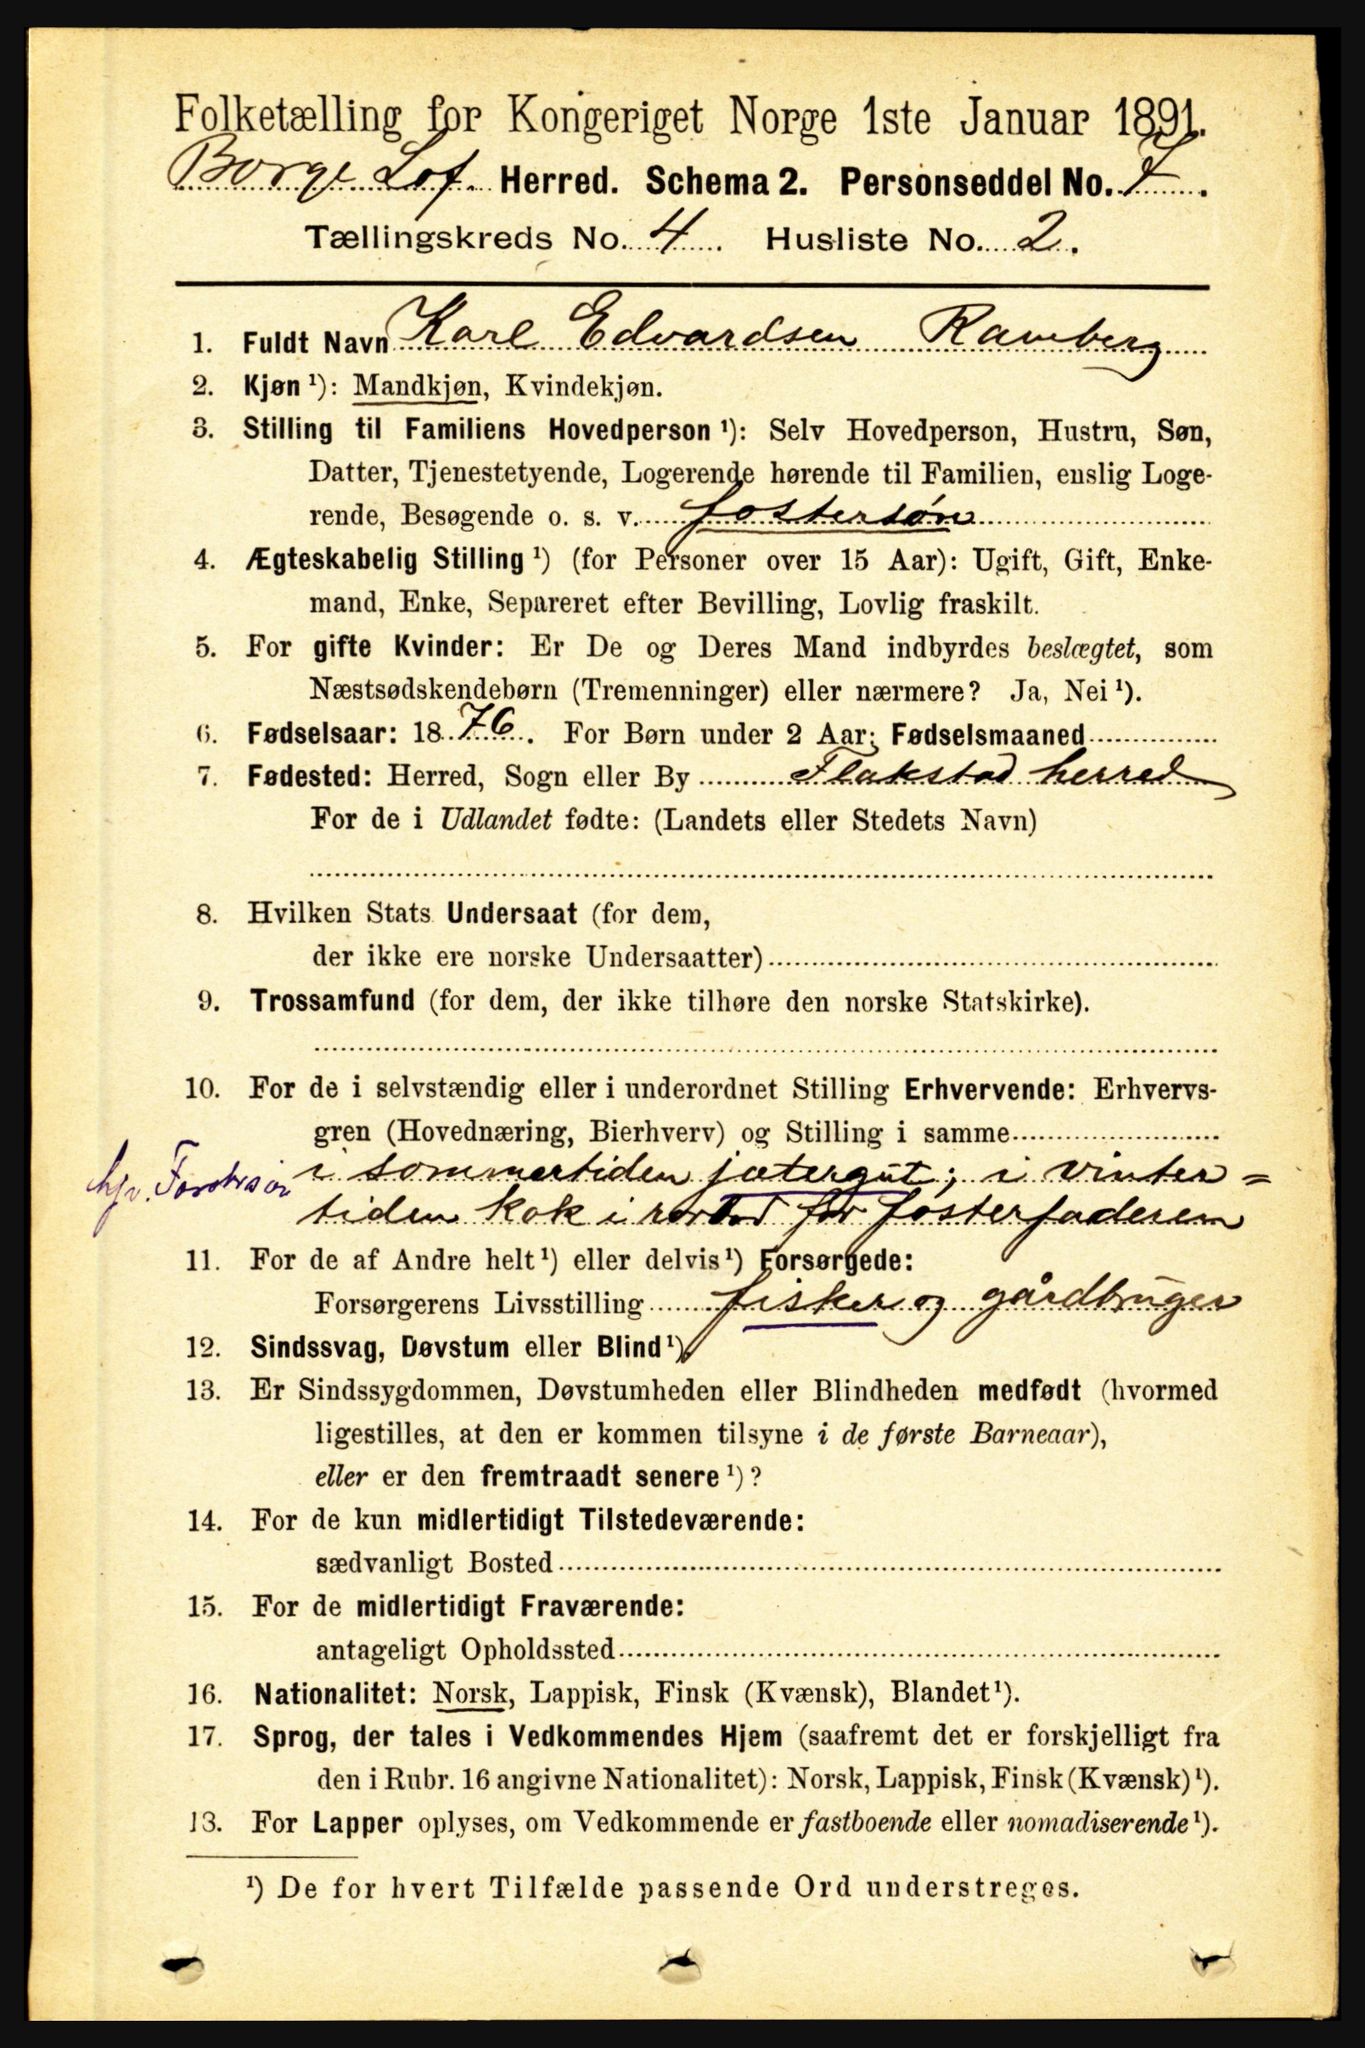 Folketælling for Kongeriget Norge 1ste Januar 1891.
Borge Lof. Herred. Schema 2. Personseddel No. 7.
Tællingskreds No. 4. Husliste No. 2.
1. Fuldt Navn Karl Edvardsen Ramberg
2. Kjøn ¹): Mandkjøn, Kvindekjøn.
3. Stilling til Familiens Hovedperson ¹): Selv Hovedperson, Hustru, Søn,
Datter, Tjenestetyende, Logerende hørende til Familien, enslig Loge-
rende, Besøgende o. s. v. fostersøn
4. Ægteskabelig Stilling ¹) (for Personer over 15 Aar): Ugift, Gift, Enke-
mand, Enke, Separeret efter Bevilling, Lovlig fraskilt.
5. For gifte Kvinder: Er De og Deres Mand indbyrdes beslægtet, som
Næstsødskendebørn (Tremenninger) eller nærmere? Ja, Nei ¹).
6. Fødselsaar: 1876. For Børn under 2 Aar: Fødselsmaaned
7. Fødested: Herred, Sogn eller By Flakstad herred
For de i Udlandet fødte: (Landets eller Stedets Navn)
8. Hvilken Stats Undersaat (for dem,
der ikke ere norske Undersaatter)
9. Trossamfund (for dem, der ikke tilhøre den norske Statskirke).
10. For de i selvstændig eller i underordnet Stilling Erhvervende: Erhvervs-
gren (Hovednæring, Bierhverv) og Stilling i samme
i sommertiden jætergut; i vinter=
tiden kok i rorbod for fosterfaderen
11. For de af Andre helt ¹) eller delvis ¹) Forsørgede:
Forsørgerens Livsstilling fisker og gårdbruger
12. Sindssvag, Døvstum eller Blind ¹).
13. Er Sindssygdommen, Døvstumheden eller Blindheden medfødt (hvormed
ligestilles, at den er kommen tilsyne i de første Barneaar),
eller er den fremtraadt senere ¹)?
14. For de kun midlertidigt Tilstedeværende:
sædvanligt Bosted
15. For de midlertidigt Fraværende:
antageligt Opholdssted
16. Nationalitet: Norsk, Lappisk, Finsk (Kvænsk), Blandet ¹).
17. Sprog, der tales i Vedkommendes Hjem (saafremt det er forskjelligt fra
den i Rubr. 16 angivne Nationalitet): Norsk, Lappisk, Finsk (Kvænsk) ¹).
13. For Lapper oplyses, om Vedkommende er fastboende eller nomadiserende ¹).
¹) De for hvert Tilfælde passende Ord understreges.